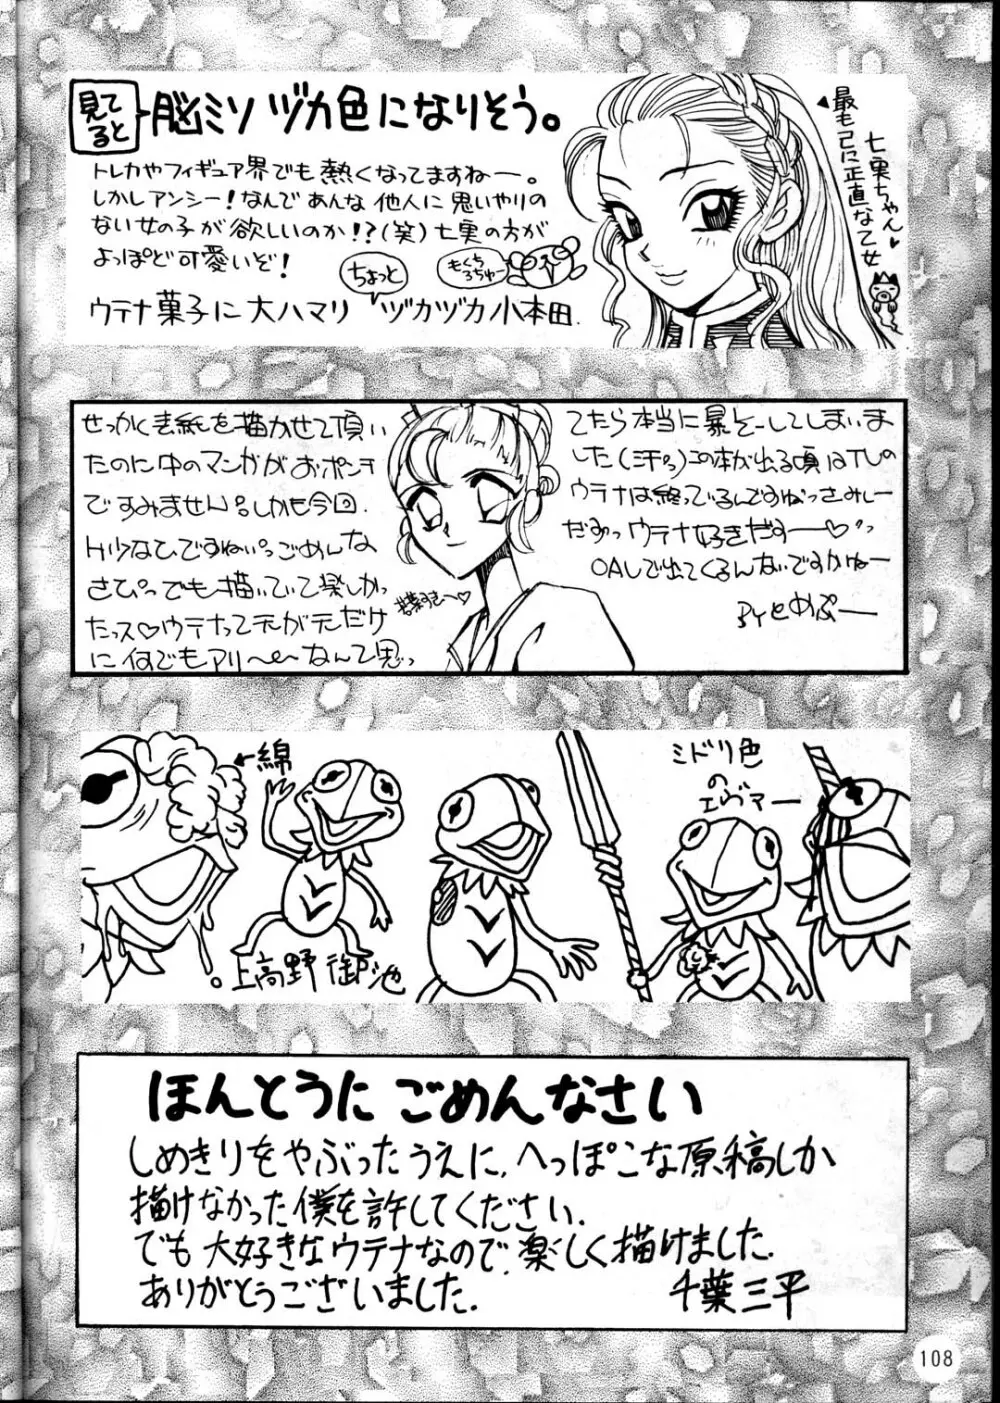 見て
ると
脳ミソ ヅカ色になりそう。
トレカやフィギュア界でも熱くなってますねー。
しかしアンシー!なんであんな他人に思いやりの
ない女の子が欲しいのか!?(笑)七実の方が
よっぽど可愛いぞ!
ちょっと
もくち
ろちゅー
ウテナ菓子に大ハマリ ヅカヅカ小本田.
七実ちゃん♥
最も己に正直な乙女
せっかく表紙を描かせて頂い
たのに中のマンガがおポンチ
ですみません。しかも今回
H少なひですねぃ。ごめんな
さひ。でも描いていて楽しかっ
たっス♡ウテナって元が元だけ
に何でもアリ〜〜なんて思っ
てたら本当に暴そーしてしまいま
した(汗)この本が出る頃はTVの
ウテナは終っているんですねっさみしー
だすっウテナ好きだす――♡
OAVで出てくるんないですかねー
BYとめぷー
←綿
上高野 御池
ミドリ色
の
エヴァー
ほんとうに ごめんなさい
しめきりをやぶったうえに、へっぽこな原稿しか
描けなかった僕を許してください.
でも大好きなウテナなので、楽しく描けました.
ありがとうございました.
千葉三平
108